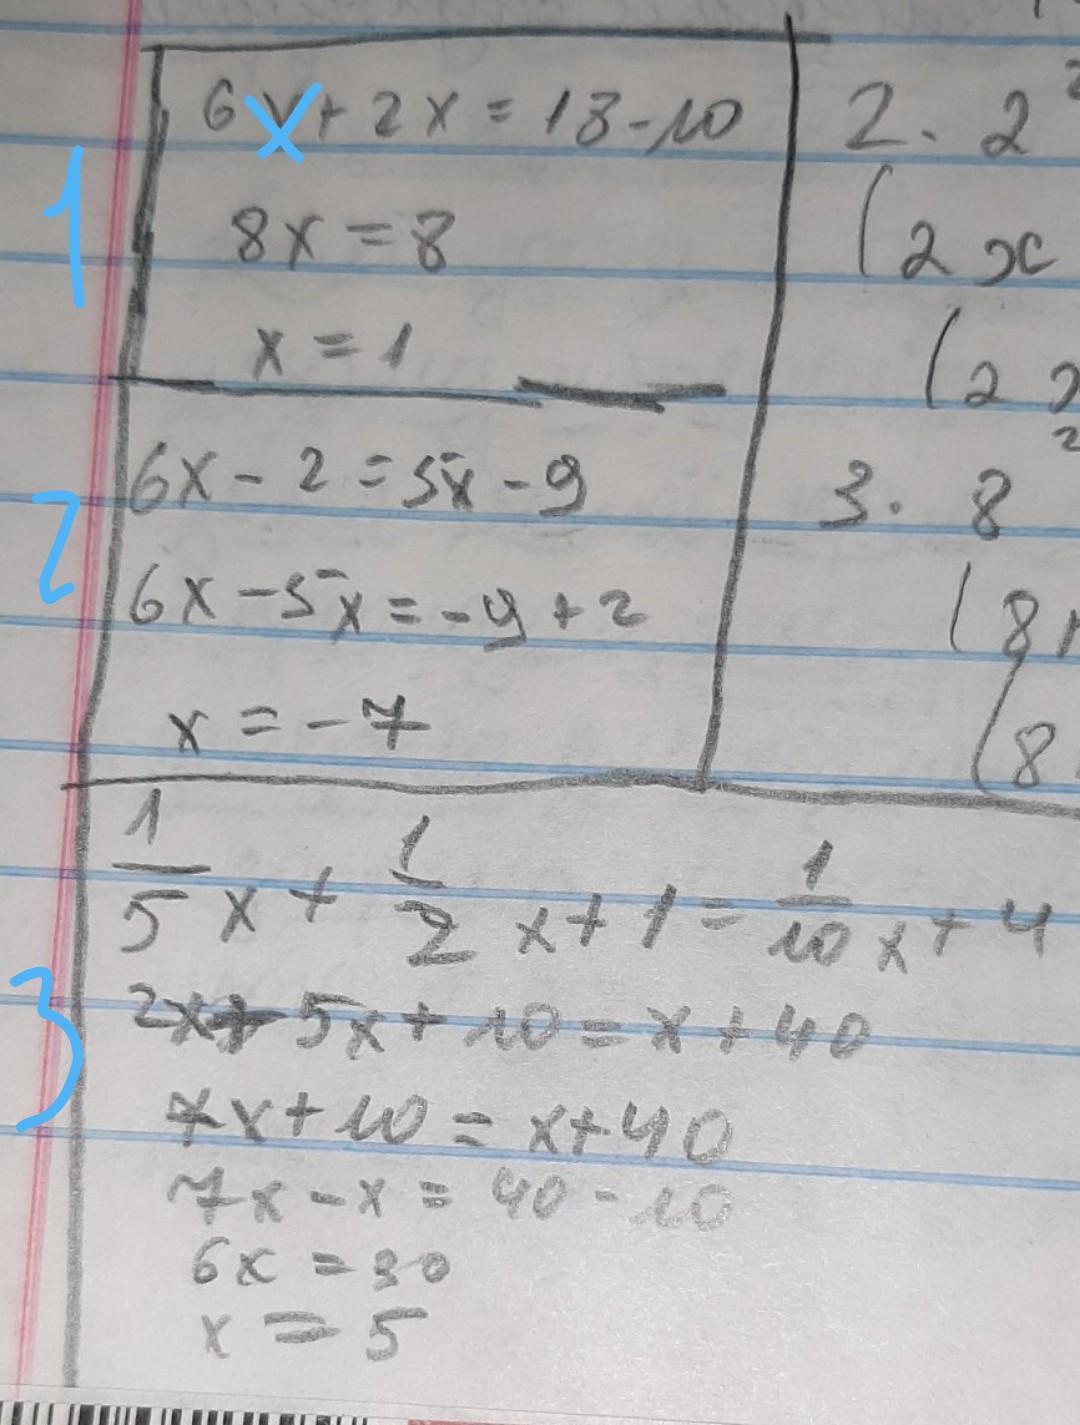 1
6x + 2x = 18 - 10
8x = 8
x = 1
2
6x - 2 = 5x - 9
6x - 5x = -9 + 2
x = -7
2. 2²
(2x
(2
3. 8²
(8
(8
3
1/5 x + 1/2 x + 1 = 1/10 x + 4
2x + 5x + 10 = x + 40
7x + 10 = x + 40
7x - x = 40 - 10
6x = 30
x = 5